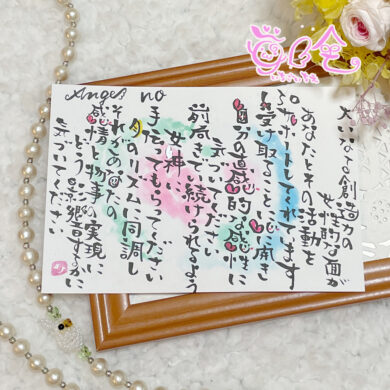 Angel no
大いなる創造力の
女性的な面が
あなたとその活動を
サポートしてくれてます
受け取り 心に開き
自分の直感的な感性に
気づいてください
続けられるよう
女神に
手伝ってもらってください
月のリズムに同調し
それがあなたの
感情と物事の実現に
どう影響するかに
気づいてください